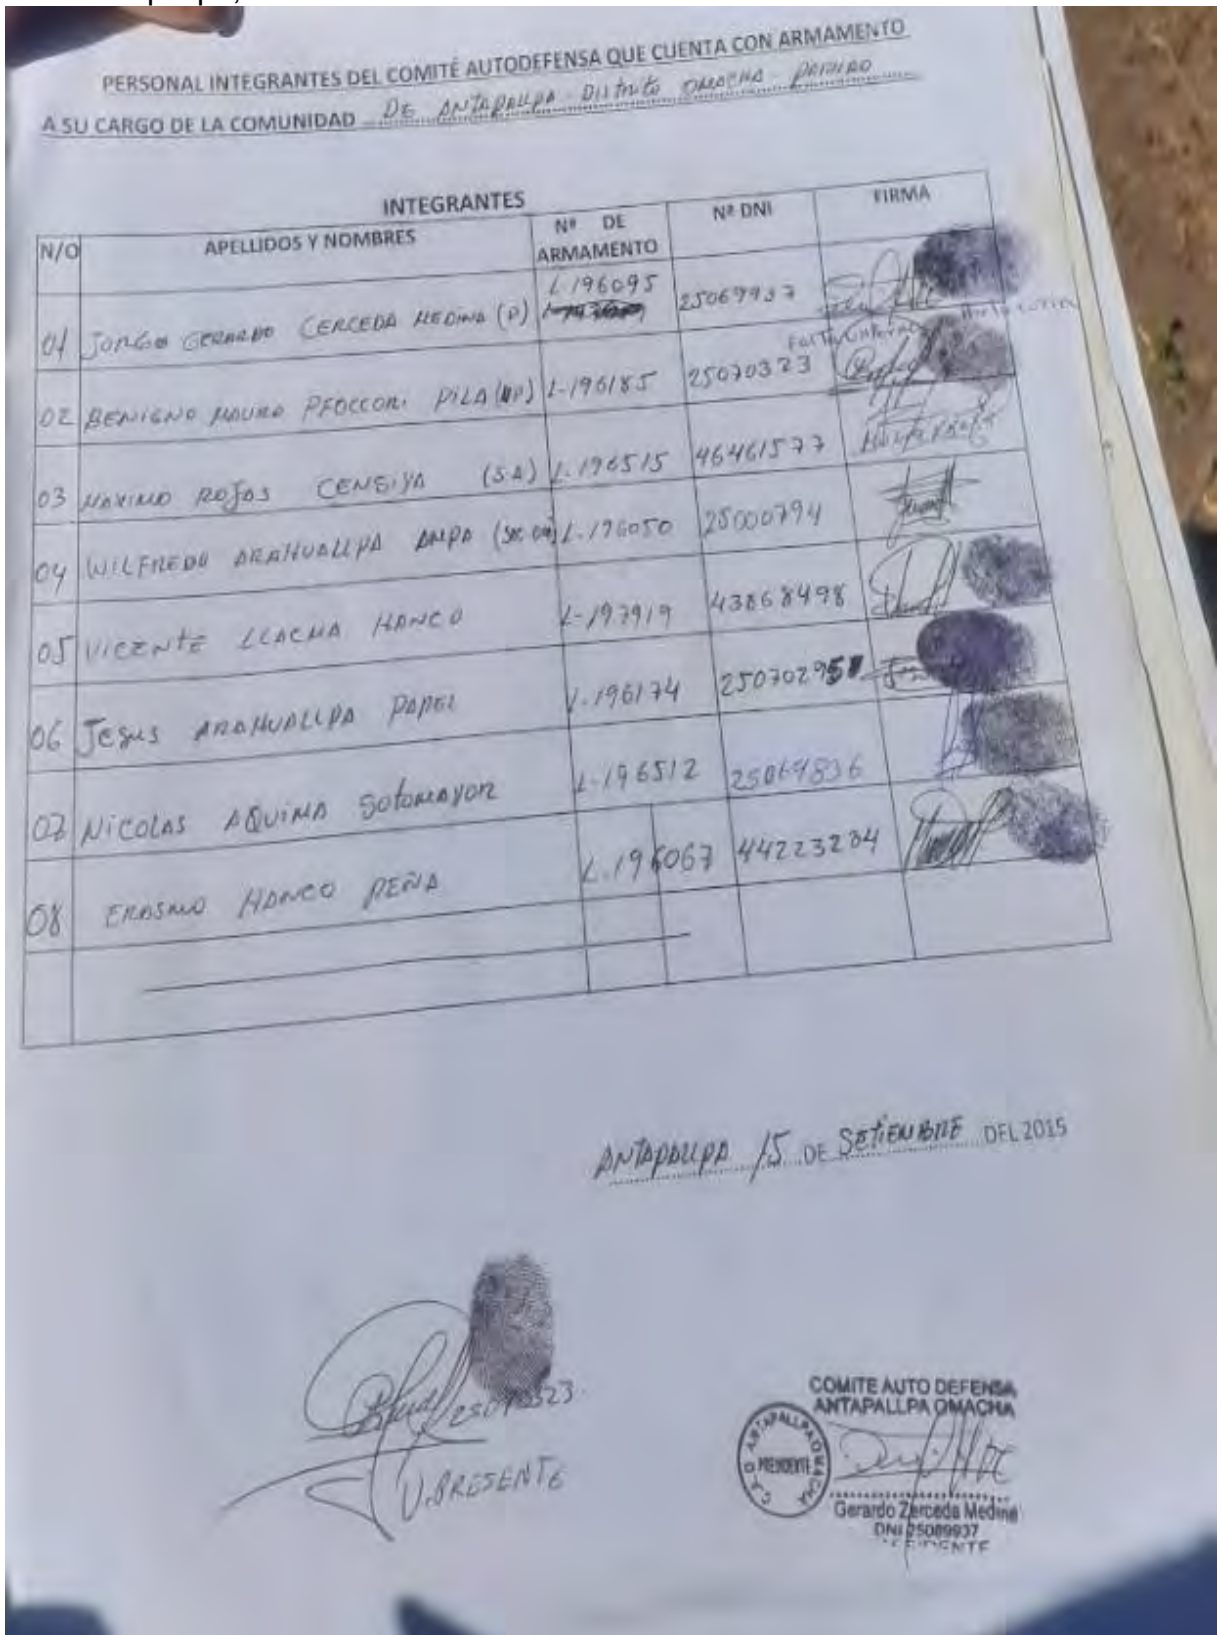 PERSONAL INTEGRANTES DEL COMITÉ AUTODEFENSA QUE CUENTA CON ARMAMENTO
A SU CARGO DE LA COMUNIDAD DE ANTAPALLPA - Distrito OMACHA - PARURO
INTEGRANTES
N/O APELLIDOS Y NOMBRES Nº DE ARMAMENTO Nº DNI FIRMA
01 JORGE GERARDO CERCEDA MEDINA (P) L-196095 25069937
02 BENIGNO MAURO PFOCCORI PILA (VP) L-196185 25070323
03 MAXIMO ROJAS CENSIYA (S.A) L.196515 46461577
04 WILFREDO ARAHUALLPA AMPA L.196050 25000794
05 VICENTE LLACMA HANCO L-197919 43868498
06 JESUS ARAHUALLPA PAPEL L.196174
07 NICOLAS AQUIMA SOTOMAYOR L-196512 25069836
08 ERASMO HANCO PEÑA L.196067 44223234
ANTAPALLPA 15 DE SETIEMBRE DEL 2015
25070323
V.PRESENTE
COMITE AUTO DEFENSA
ANTAPALLPA OMACHA
C.A.D ANTAPALLPA OMACHA
PRESIDENTE
Gerardo Zerceda Medina
DNI 25069937